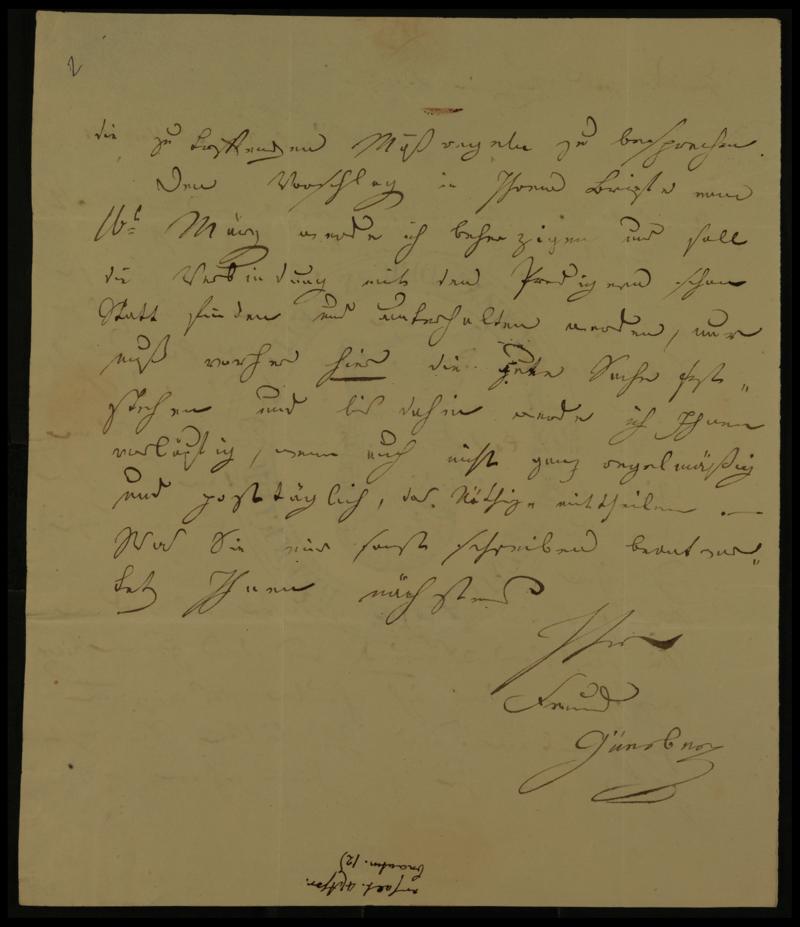 2
die zu treffenden Maßregeln zu besprechen.
Den Vorschlag in Ihrem Briefe vom
16t März werde ich beherzigen und soll
die Verbindung mit den Predigern schon
Statt finden und unterhalten werden, nur
muß vorher hier die gute Sache fest„
stehen und bis dahin werde ich Ihnen
vorläufig, wenn auch nicht ganz regelmäßig
und posttäglich, das Nöthige mittheilen. —
Was Sie mir sonst schreiben beantwor„
tet Ihnen nächstens
Ihr
Freund
Günsburg